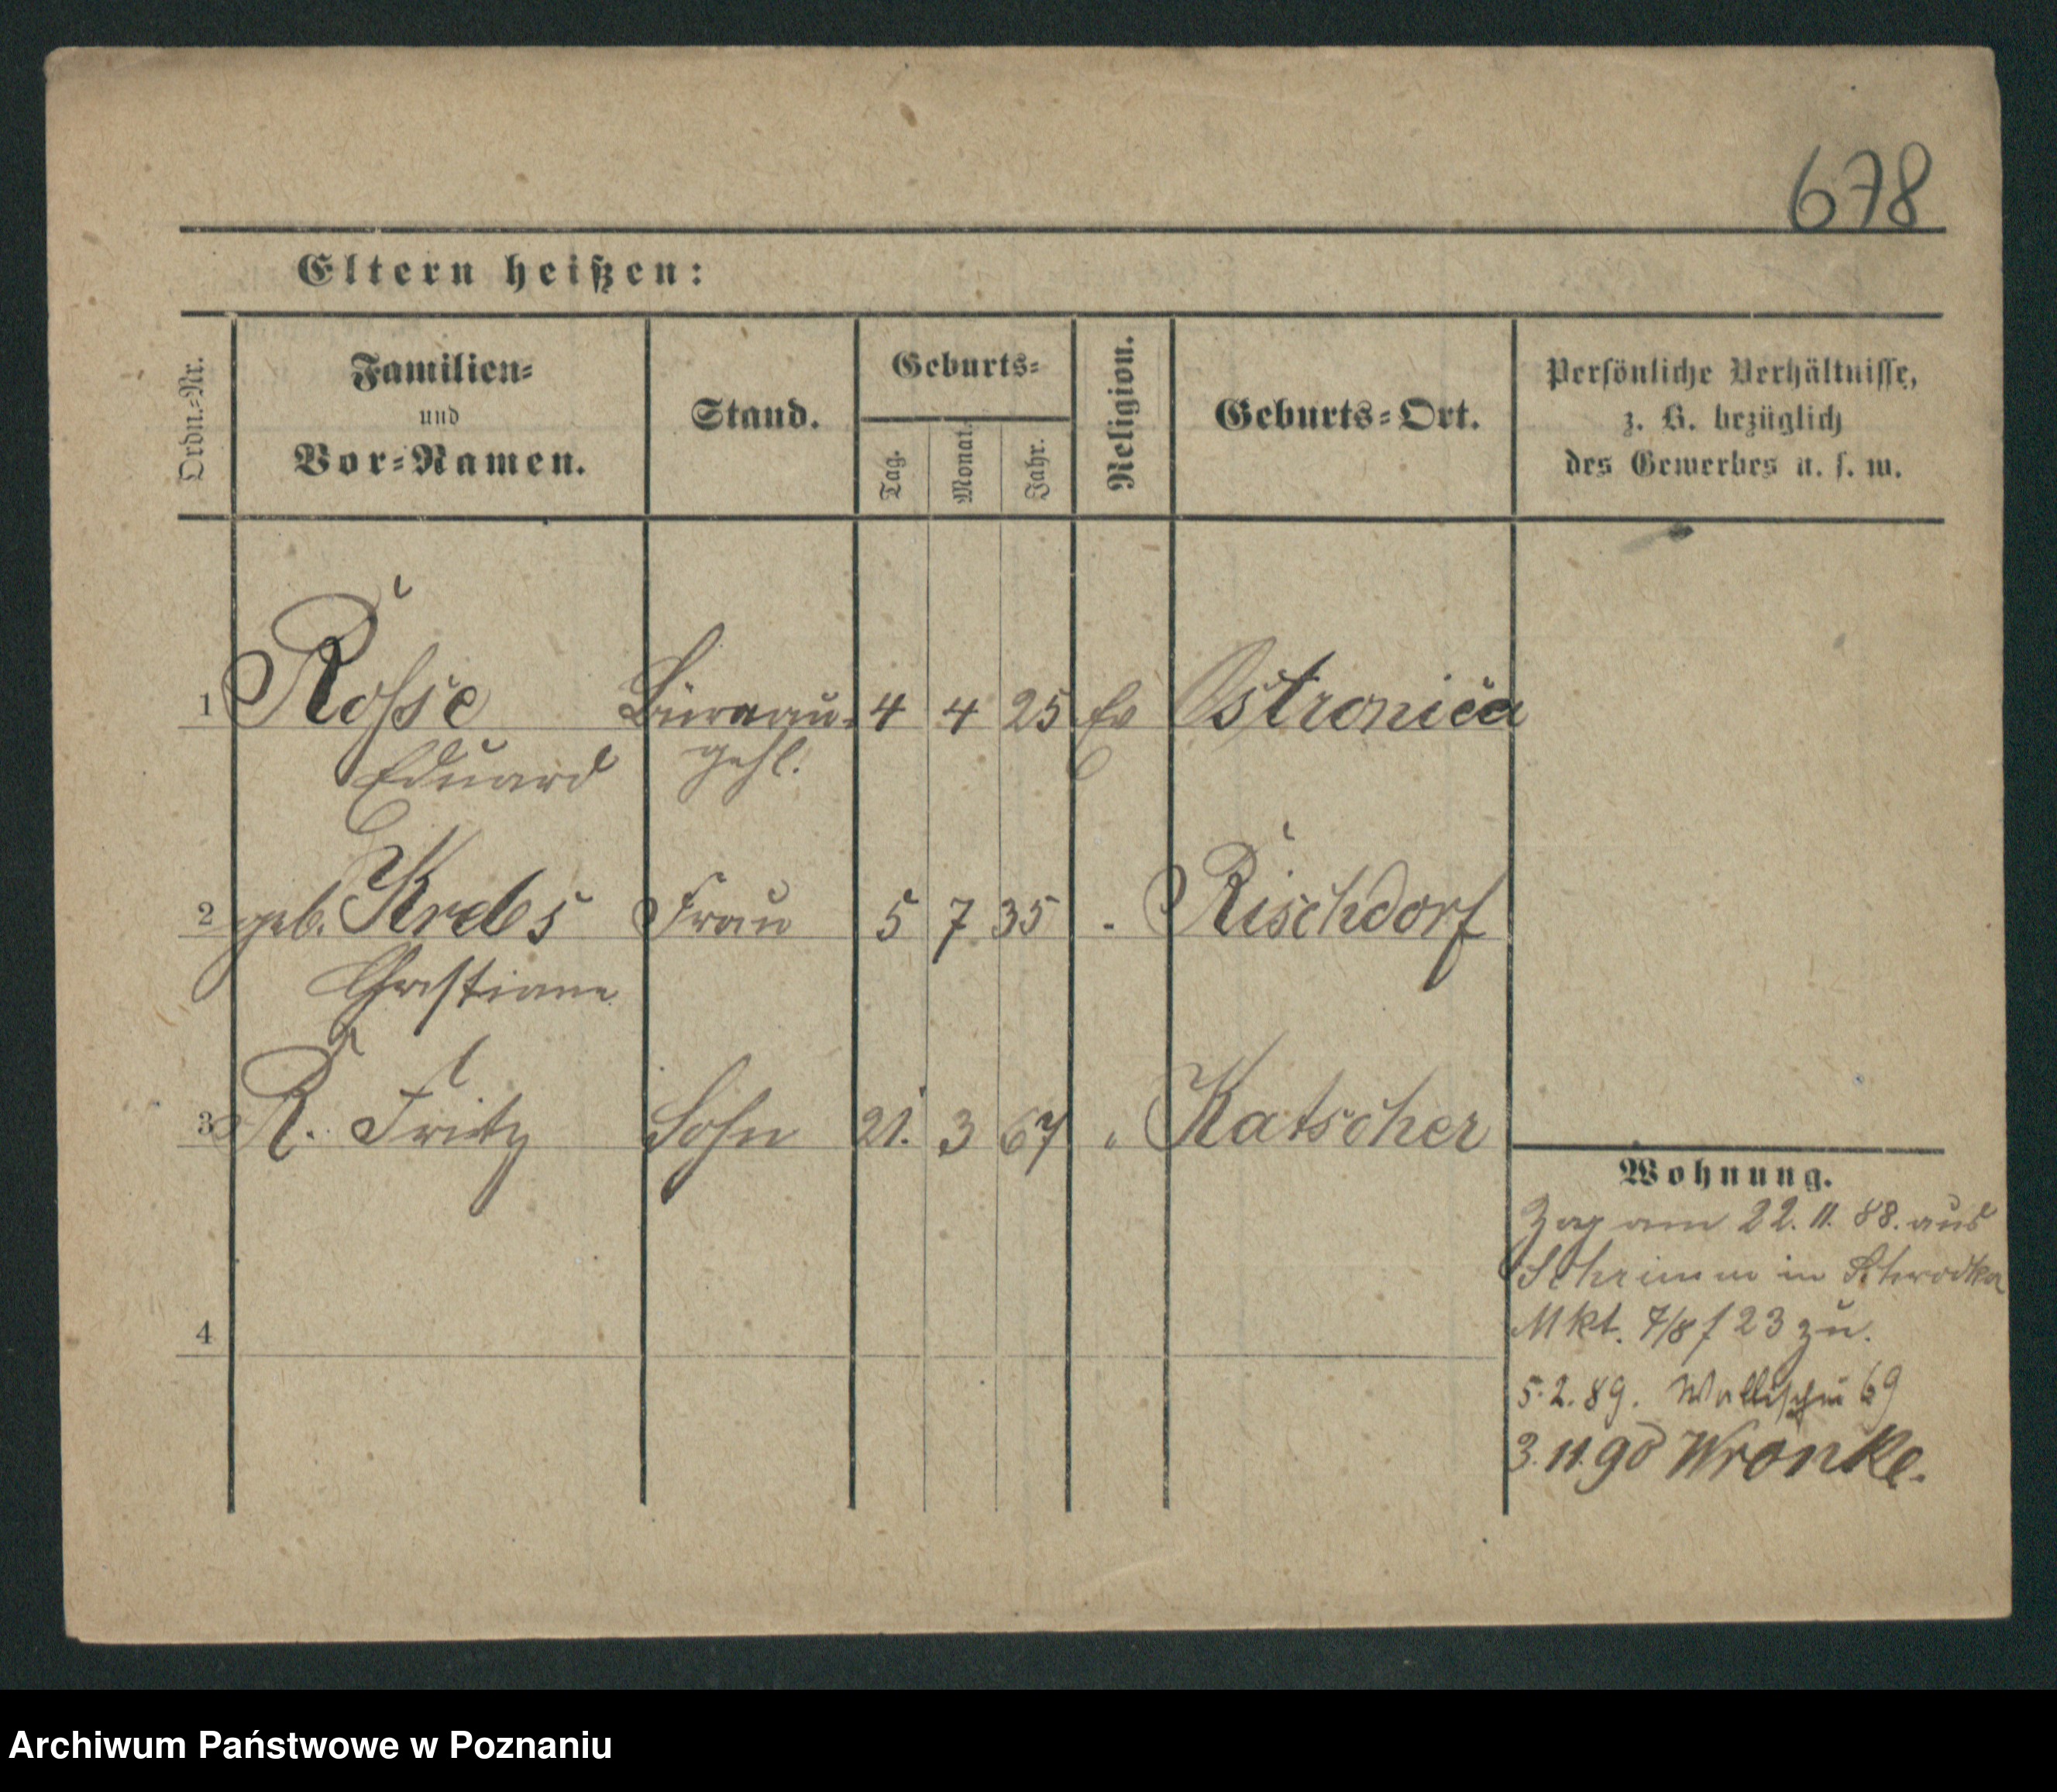 678
Eltern heißen:
Ordn.-Nr.
Familien-
und
Vor-Namen.
Stand.
Geburts-
Tag.
Monat.
Jahr.
Religion.
Geburts-Ort.
Persönliche Verhältnisse,
z. B. bezüglich
des Gewerbes u. s. w.
1 Rosse Bureau- 4 4 25 Ev
Eduard gehl.
2 geb. Krebs Frau 5 7 35 - Rischdorf
Christiane
3 R. Fritz Sohn 21. 3 67 " Katscher
4
Wohnung.
Zog am 22. 11. 88. aus
Schrimm in Schrodka
Mkt. 7/8 f 23 zu.
5. 2. 89. Wallischei 69
3. 11. 90 Wronke.
Archiwum Państwowe w Poznaniu